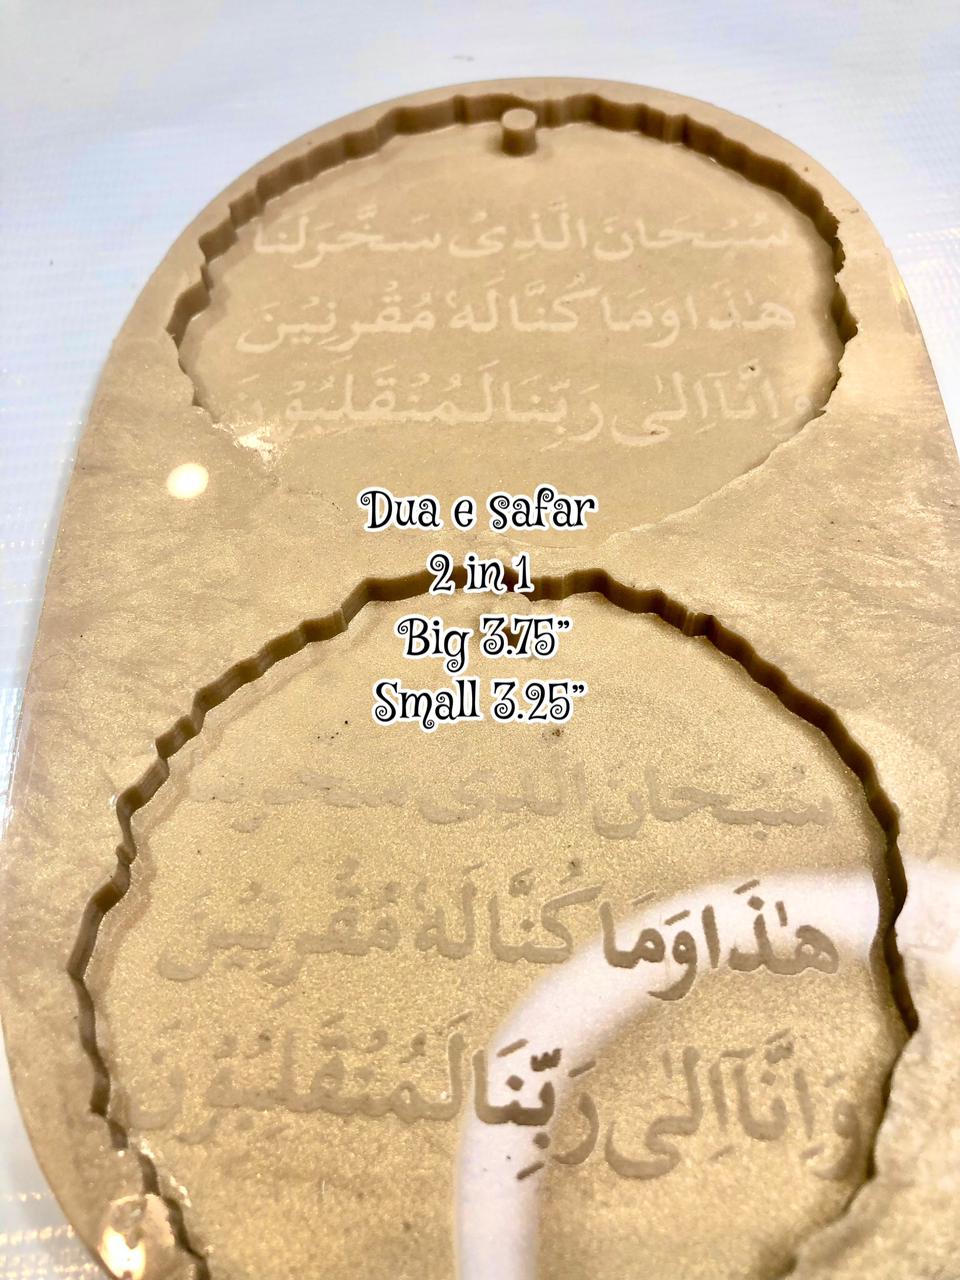 سُبْحَانَ الَّذِیْ سَخَّرَلَنَا
هٰذَا وَمَا كُنَّا لَهٗ مُقْرِنِيْنَ
وَاِنَّآ اِلٰی رَبِّنَا لَمُنْقَلِبُوْنَ
Dua e safar
2 in 1
Big 3.75”
Small 3.25”
سُبْحَانَ الَّذِیْ
هٰذَا وَمَا كُنَّا لَهٗ مُقْرِنِيْنَ
وَاِنَّآ اِلٰی رَبِّنَا لَمُنْقَلِبُوْنَ